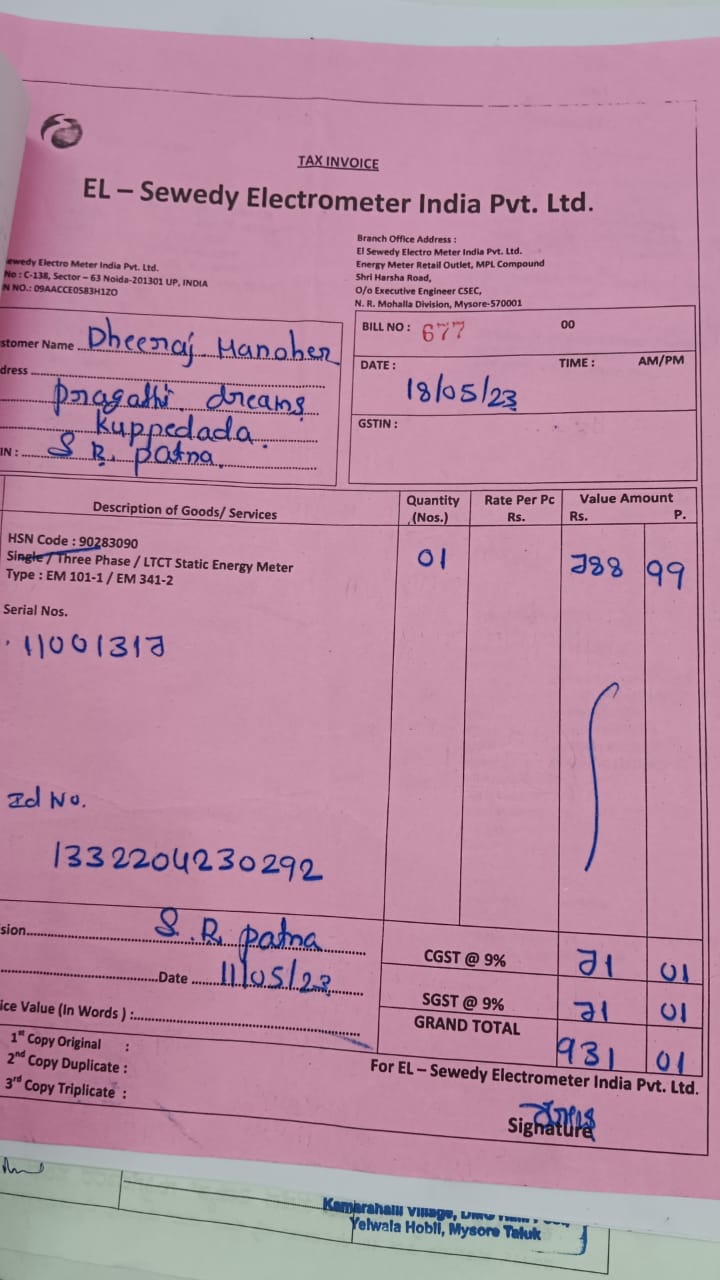 TAX INVOICE
EL – Sewedy Electrometer India Pvt. Ltd.
ewedy Electro Meter India Pvt. Ltd.
No : C-138, Sector – 63 Noida-201301 UP, INDIA
N NO.: 09AACCE0583H1ZO
Branch Office Address :
El Sewedy Electro Meter India Pvt. Ltd.
Energy Meter Retail Outlet, MPL Compound
Shri Harsha Road,
O/o Executive Engineer CSEC,
N. R. Mohalla Division, Mysore-570001
stomer Name Dheeraj Manoher
dress
pragathi dreams
Kuppedada.
IN : S R. patna.
BILL NO : 677 00
DATE : TIME : AM/PM
18/05/23
GSTIN :
Description of Goods/ Services Quantity (Nos.) Rate Per Pc Rs. Value Amount Rs. P.
HSN Code : 90283090
Single / Three Phase / LTCT Static Energy Meter 01 788 99
Type : EM 101-1 / EM 341-2
Serial Nos.
11001317
Id No.
1332204230292
sion S. R. patna
Date 11/05/23
ice Value (In Words ) :
CGST @ 9% 71 01
SGST @ 9% 71 01
GRAND TOTAL 931 01
1st Copy Original :
2nd Copy Duplicate :
3rd Copy Triplicate :
For EL – Sewedy Electrometer India Pvt. Ltd.
Signature
Kamarahalli Village,
Yelwala Hobli, Mysore Taluk